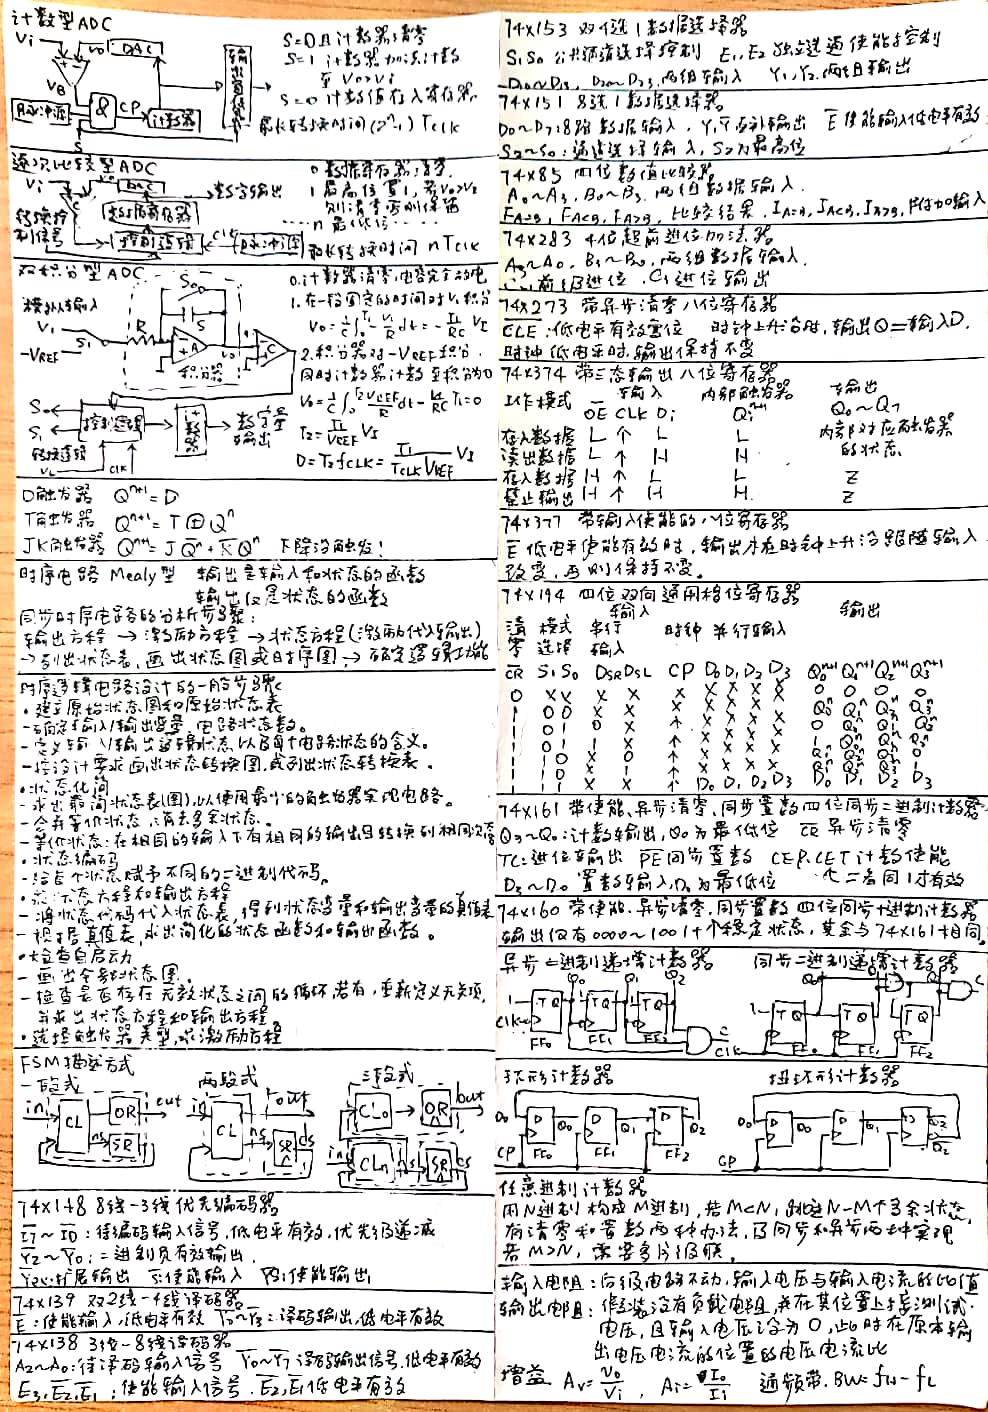 计数型ADC
Vi
Vo
DAC
VB
&
CP
脉冲源
计数器
S
S=0且计数器清零
S=1 计数器加法计数
至 Vo>Vi
S=0 计数值存入寄存器
最长转换时间(2ⁿ-1)TCLK
逐次比较型ADC
Vi
DAC
数字输出
数据寄存器
转换控
制信号
控制逻辑
CLK
脉冲源
0 数据寄存器清零
1 最高位置1, 若Vo>Vi
则清零否则保留
……n 最低位……
最长转换时间 nTCLK
双积分型ADC
模拟输入
V₁
-VREF
S₁
R
S₀
A
Vo
C
积分器
S₀
S₁
控制逻辑
计数器
数字量
输出
转换逻辑
VL
CLK
0.计数器清零,电容完全放电
1.在一段固定的时间对V₁积分
2.积分器对-VREF积分,
同时计数器计数至积分为0
D触发器 Qⁿ⁺¹=D
T触发器 Qⁿ⁺¹=T⊕Qⁿ
JK触发器 Qⁿ⁺¹=JQ̅ⁿ+K̅Qⁿ 下降沿触发!
时序电路 Mealy型 输出是输入和状态的函数
输出仅是状态的函数
同步时序电路的分析步骤:
输出方程→激励方程→状态方程(激励代入输出)
→列出状态表,画出状态图或时序图,→确定逻辑功能
时序逻辑电路设计的一般步骤
•建立原始状态图和原始状态表
-确定输入/输出变量、电路状态数。
-定义输入/输出逻辑状态以及每个电路状态的含义。
-按设计要求画出状态转换图,或列出状态转换表。
•状态化简
-求出最简状态表(图),以使用最少的触发器实现电路。
-合并等价状态,消去多余状态。
-等价状态:在相同的输入下有相同的输出且转换到相同次态
•状态编码
-给每个状态赋予不同的二进制代码。
•求状态方程和输出方程
-将状态代码代入状态表,得到状态变量和输出变量的真值表
-根据真值表,求出简化的状态函数和输出函数。
•检查自启动
-画出全部状态图。
-检查是否存在无效状态之间的循环若有,重新定义无关项,
并求出状态方程和输出方程
•选择触发器类型,求激励方程
FSM描述方式
一段式
两段式
三段式
in
CL
OR
out
ns
SR
in
CL
out
ns
SR
cs
CL₀
OR
out
in
CLn
ns
SR
cs
74x148 8线-3线优先编码器
I̅₇~I̅₀:待编码输入信号,低电平有效,优先级递减
Y̅₂~Y̅₀:二进制负有效输出,
Y̅EX:扩展输出 S̅:使能输入 YS:使能输出
74x139 双2线-4线译码器
E̅:使能输入,低电平有效 Y̅₀~Y̅₃:译码输出,低电平有效
74x138 3线-8线译码器
A₂~A₀:待译码输入信号 Y̅₀~Y̅₇译码输出信号.低电平有效
E₃,E̅₂,E̅₁:使能输入信号.E̅₂,E̅₁低电平有效
74x153 双4选1数据选择器
S₁S₀公共通道选择控制 E₁,E₂独立选通使能控制
D₁₀~D₁₃,D₂₀~D₂₃,两组输入 Y₁,Y₂.两组输出
74x151 8选1数据选择器
D₀~D₇:8路数据输入,Y,Y̅互补输出 E̅使能输入低电平有效
S₂~S₀:通道选择输入,S₂为最高位
74x85 四位数值比较器
A₀~A₃,B₀~B₃.两组数据输入.
FA=B,FA<B,FA>B,比较结果.IA=B,IA<B,IA>B,附加输入
74x283 4位超前进位加法器
A₃~A₀,B₃~B₀,两组数据输入.
C₋₁前级进位.C₃进位输出
74x273 带异步清零八位寄存器
C̅L̅E̅:低电平有效置位 时钟上升沿时,输出Q=输入D.
时钟低电平时,输出保持不变
74x374 带三态输出八位寄存器
工作模式 输入 内部触发器 输出
O̅E̅ CLK Dᵢ Qᵢⁿ⁺¹ Q₀~Q₇
存入数据 L ↑ L L 内部对应触发器
读出数据 L ↑ H H 的状态
存入数据 H ↑ L L Z
禁止输出 H ↑ H H Z
74x377 带输入使能的八位寄存器
E̅低电平使能有效时,输出才在时钟上升沿跟随输入
改变,否则保持不变。
74x194 四位双向通用移位寄存器
输入 输出
清 模式 串行 时钟 并行输入
零 选择 输入
C̅R̅ S₁S₀ DSR DSL CP D₀ D₁ D₂ D₃ Q₀ⁿ⁺¹ Q₁ⁿ⁺¹ Q₂ⁿ⁺¹ Q₃ⁿ⁺¹
74x161 带使能、异步清零、同步置数四位同步二进制计数器
Q₃~Q₀:计数输出,Q₀为最低位 C̅R̅异步清零
TC:进位输出 P̅E̅同步置数 CEP,CET计数使能
D₃~D₀ 置数输入,D₀为最低位 二者同1才有效
74x160 带使能、异步清零,同步置数四位同步十进制计数器
输出仅有0000~1001十个稳定状态,其余与74x161相同.
异步二进制递增计数器 同步二进制递增计数器
Q₀ Q₁ Q₂
1 TQ TQ TQ
CLK
FF₀ FF₁ FF₂
C
Q₀
1 TQ TQ TQ
CLK FF₀ FF₁ FF₂
C
环形计数器 扭环形计数器
D₀ D Q₀ D Q₁ D Q₂
CP FF₀ FF₁ FF₂
D₀ D Q₀ D Q₁ D
CP
任意进制计数器
用N进制构成M进制,若M<N,跳过N-M个多余状态,
有清零和置数两种办法,及同步和异步两种实现
若M>N,需要多片级联.
输入电阻:后级电路不动,输入电压与输入电流的比值
输出电阻:假装没有负载电阻,并在其位置上接测试
电压,且输入电压设为0,此时在原本输
出电压电流的位置的电压电流比
增益 Av=Vo/Vi, Ai=Io/Ii 通频带.BW=fH-fL